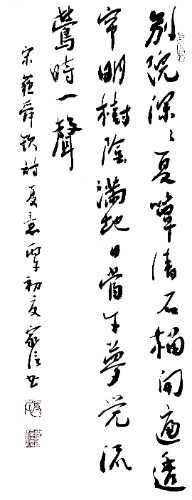 別院深〻夏簟清石榴開遍透
帘明樹陰滿地日當午夢觉流
鶯時一聲
宋蘇舜欽詩夏意初夏家信书